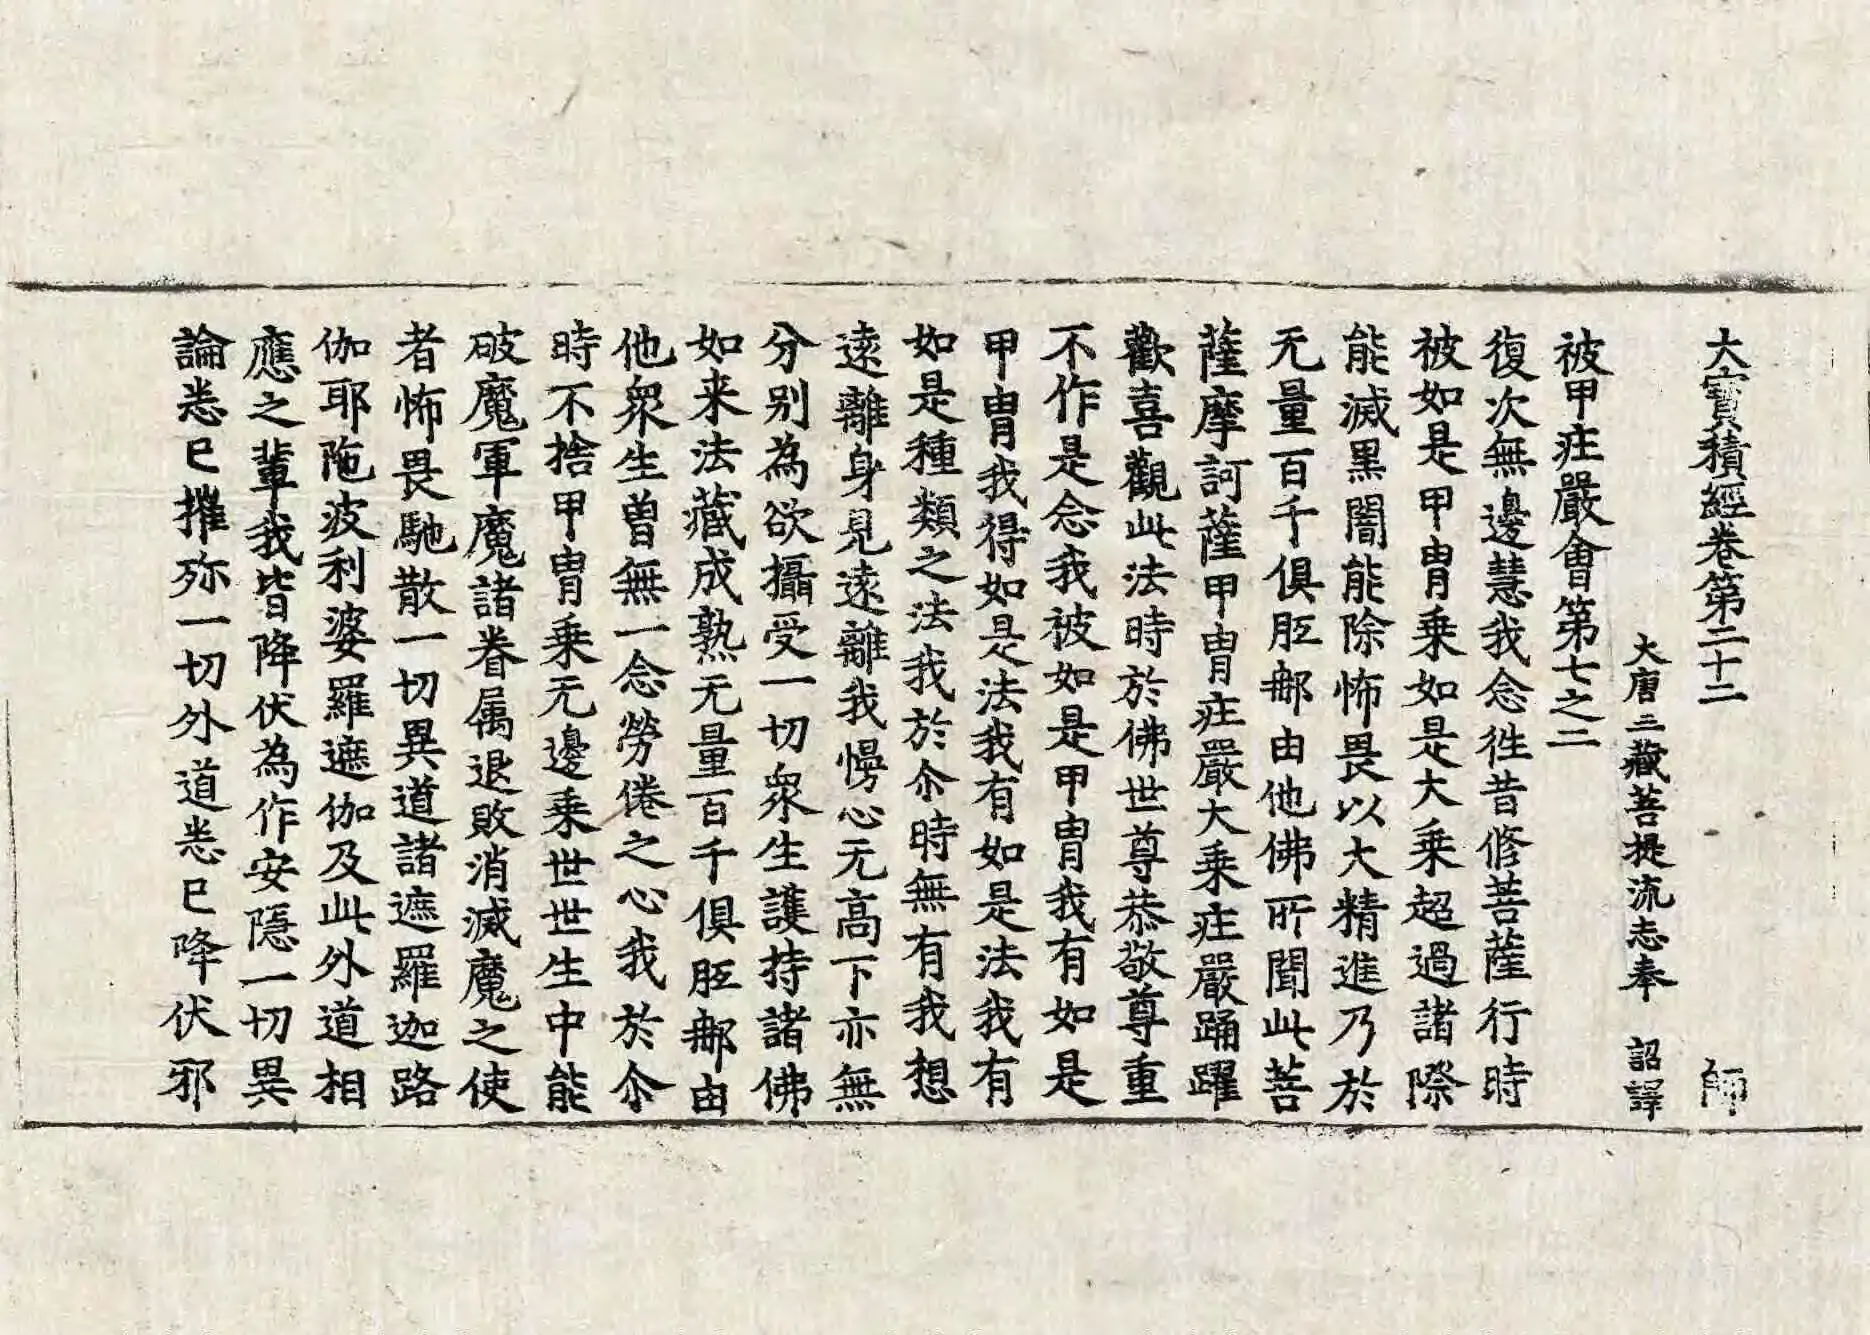 大寶積經卷第二十二 師
大唐三藏菩提流志奉 詔譯
被甲庄嚴會第七之二
復次無邊慧我念徃昔修菩薩行時
被如是甲冑乗如是大乗超過諸際
能滅黒闇能除怖畏以大精進乃於
无量百千俱胝𨚗由他佛所聞此菩
薩摩訶薩甲冑庄嚴大乗庄嚴踊躍
歡喜觀此法時於佛世尊恭敬尊重
不作是念我被如是甲冑我有如是
甲冑我得如是法我有如是法我有
如是種類之法我於尒時無有我想
逺離身見逺離我慢心无高下亦無
分别為欲攝受一切衆生護持諸佛
如来法藏成熟无量百千俱胝𨚗由
他衆生曽無一念勞倦之心我於尒
時不捨甲冑乗无邊乗世世生中能
破魔軍魔諸眷属退敗消滅魔之使
者怖畏馳散一切異道諸遮羅迦路
伽耶陁波利婆羅遮伽及此外道相
應之輩我皆降伏為作安隱一切異
論悉已摧殄一切外道悉已降伏邪